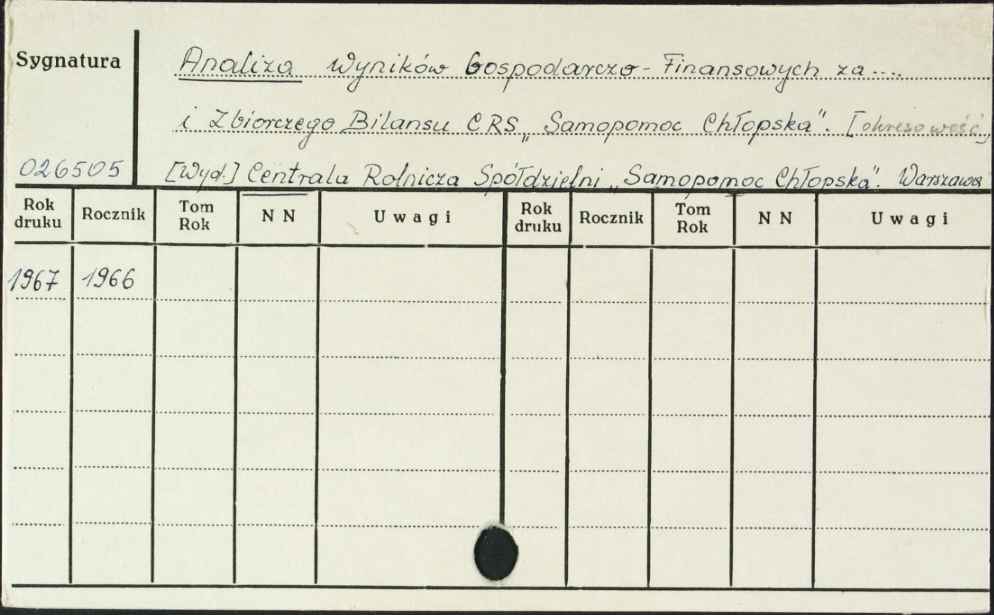 Sygnatura
Analiza Wyników Gospodarczo-Finansowych za....
i Zbiorczego Bilansu CRS „Samopomoc Chłopska". [okresowość]
026505 [Wyd.] Centrala Rolnicza Spółdzielni „Samopomoc Chłopska". Warszawa
Rok druku Rocznik Tom Rok N N Uwagi Rok druku Rocznik Tom Rok N N Uwagi
1967 1966